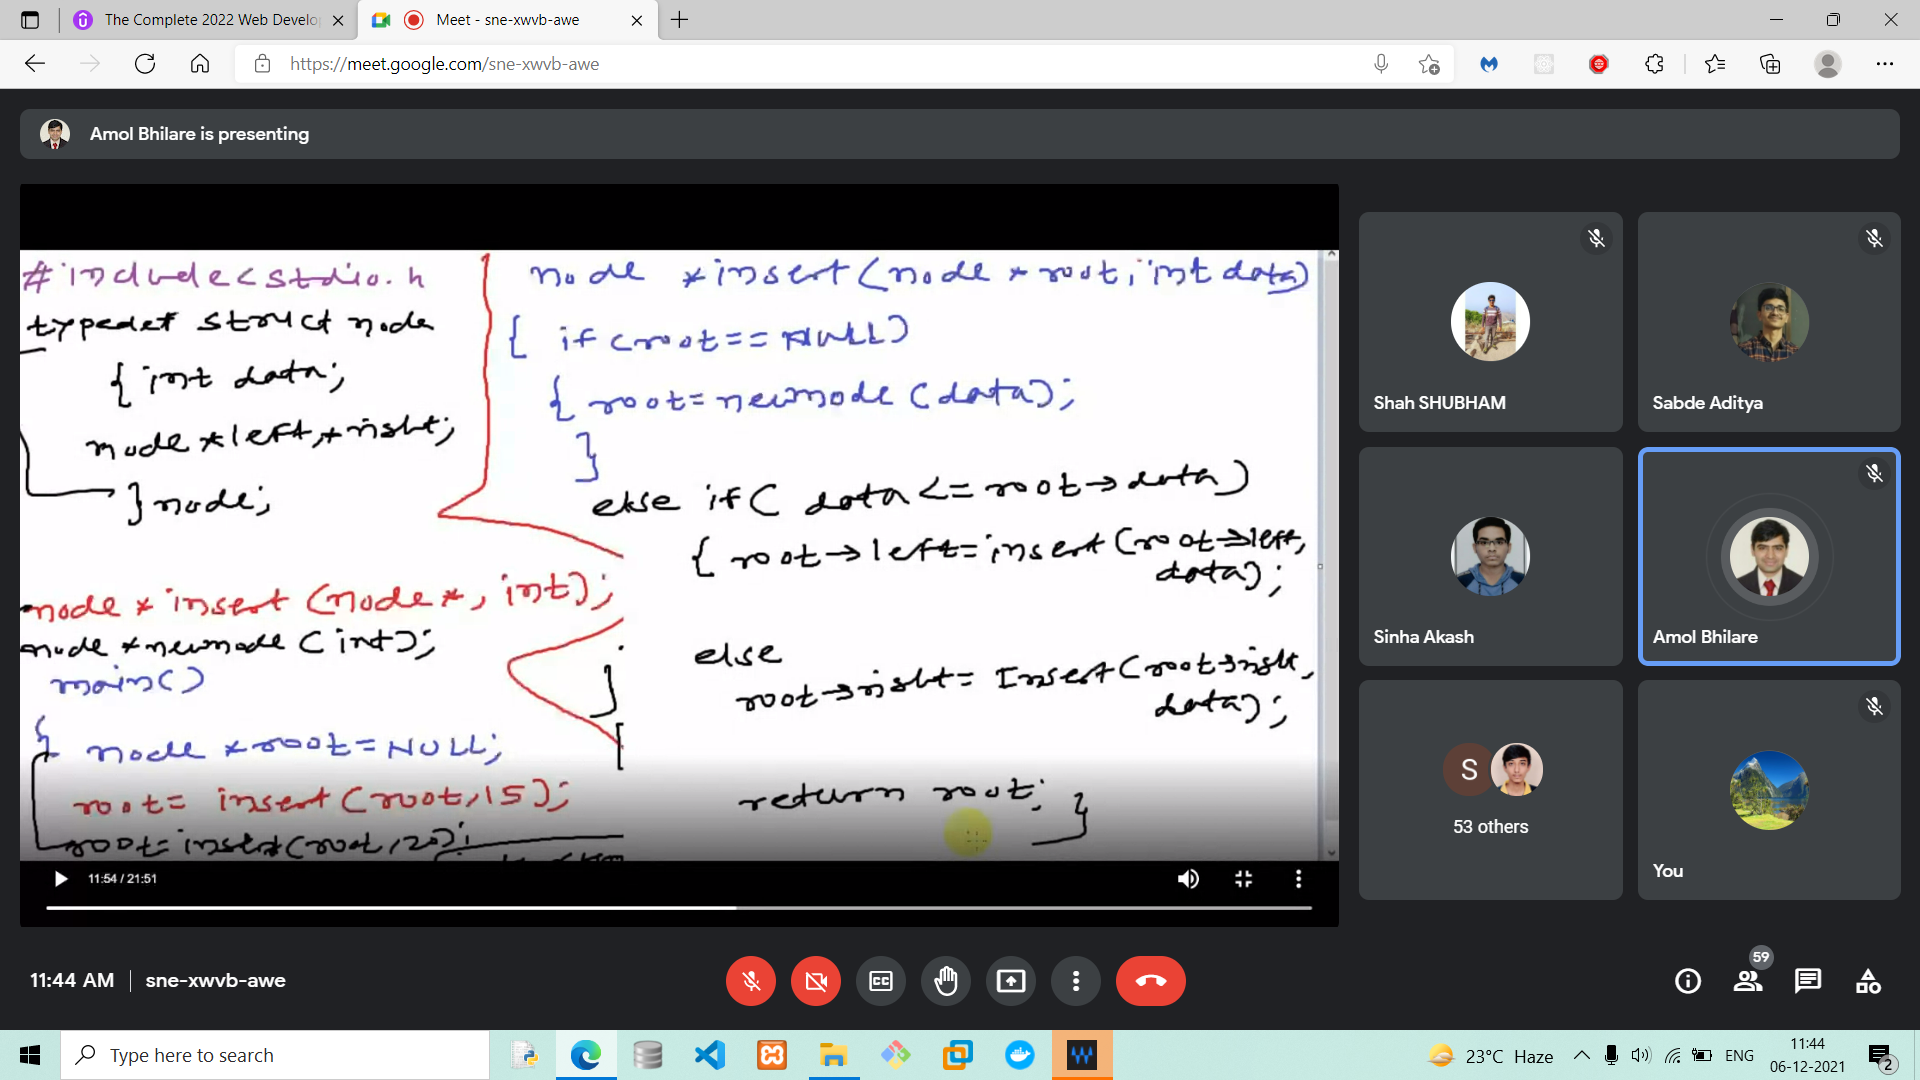 The Complete 2022 Web Develo
Meet - sne-xwvb-awe
https://meet.google.com/sne-xwvb-awe
Amol Bhilare is presenting
#include<stdio.h
typedef struct node
{ int data;
node *left, *right;
} node;
node * insert (node *, int);
node *newnode (int);
main()
{ node *root = NULL;
root = insert (root, 15);
root = insert (root, 20);
node *insert (node * root, int data)
{ if (root == NULL)
{ root = newnode (data);
}
else if ( data <= root → data)
{ root → left = insert (root → left,
data);
}
else
root → right = Insert (root → right,
data);
return root; }
11:54 / 21:51
Shah SHUBHAM
Sabde Aditya
Sinha Akash
Amol Bhilare
S
53 others
You
11:44 AM | sne-xwvb-awe
CC
59
Type here to search
W
23°C Haze
ENG
11:44
06-12-2021
2